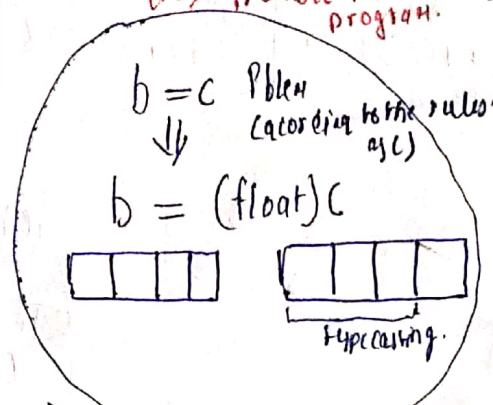 program.
b = c Pblem
(according to the rules
of C)
⇓
b = (float) C
typecasting.